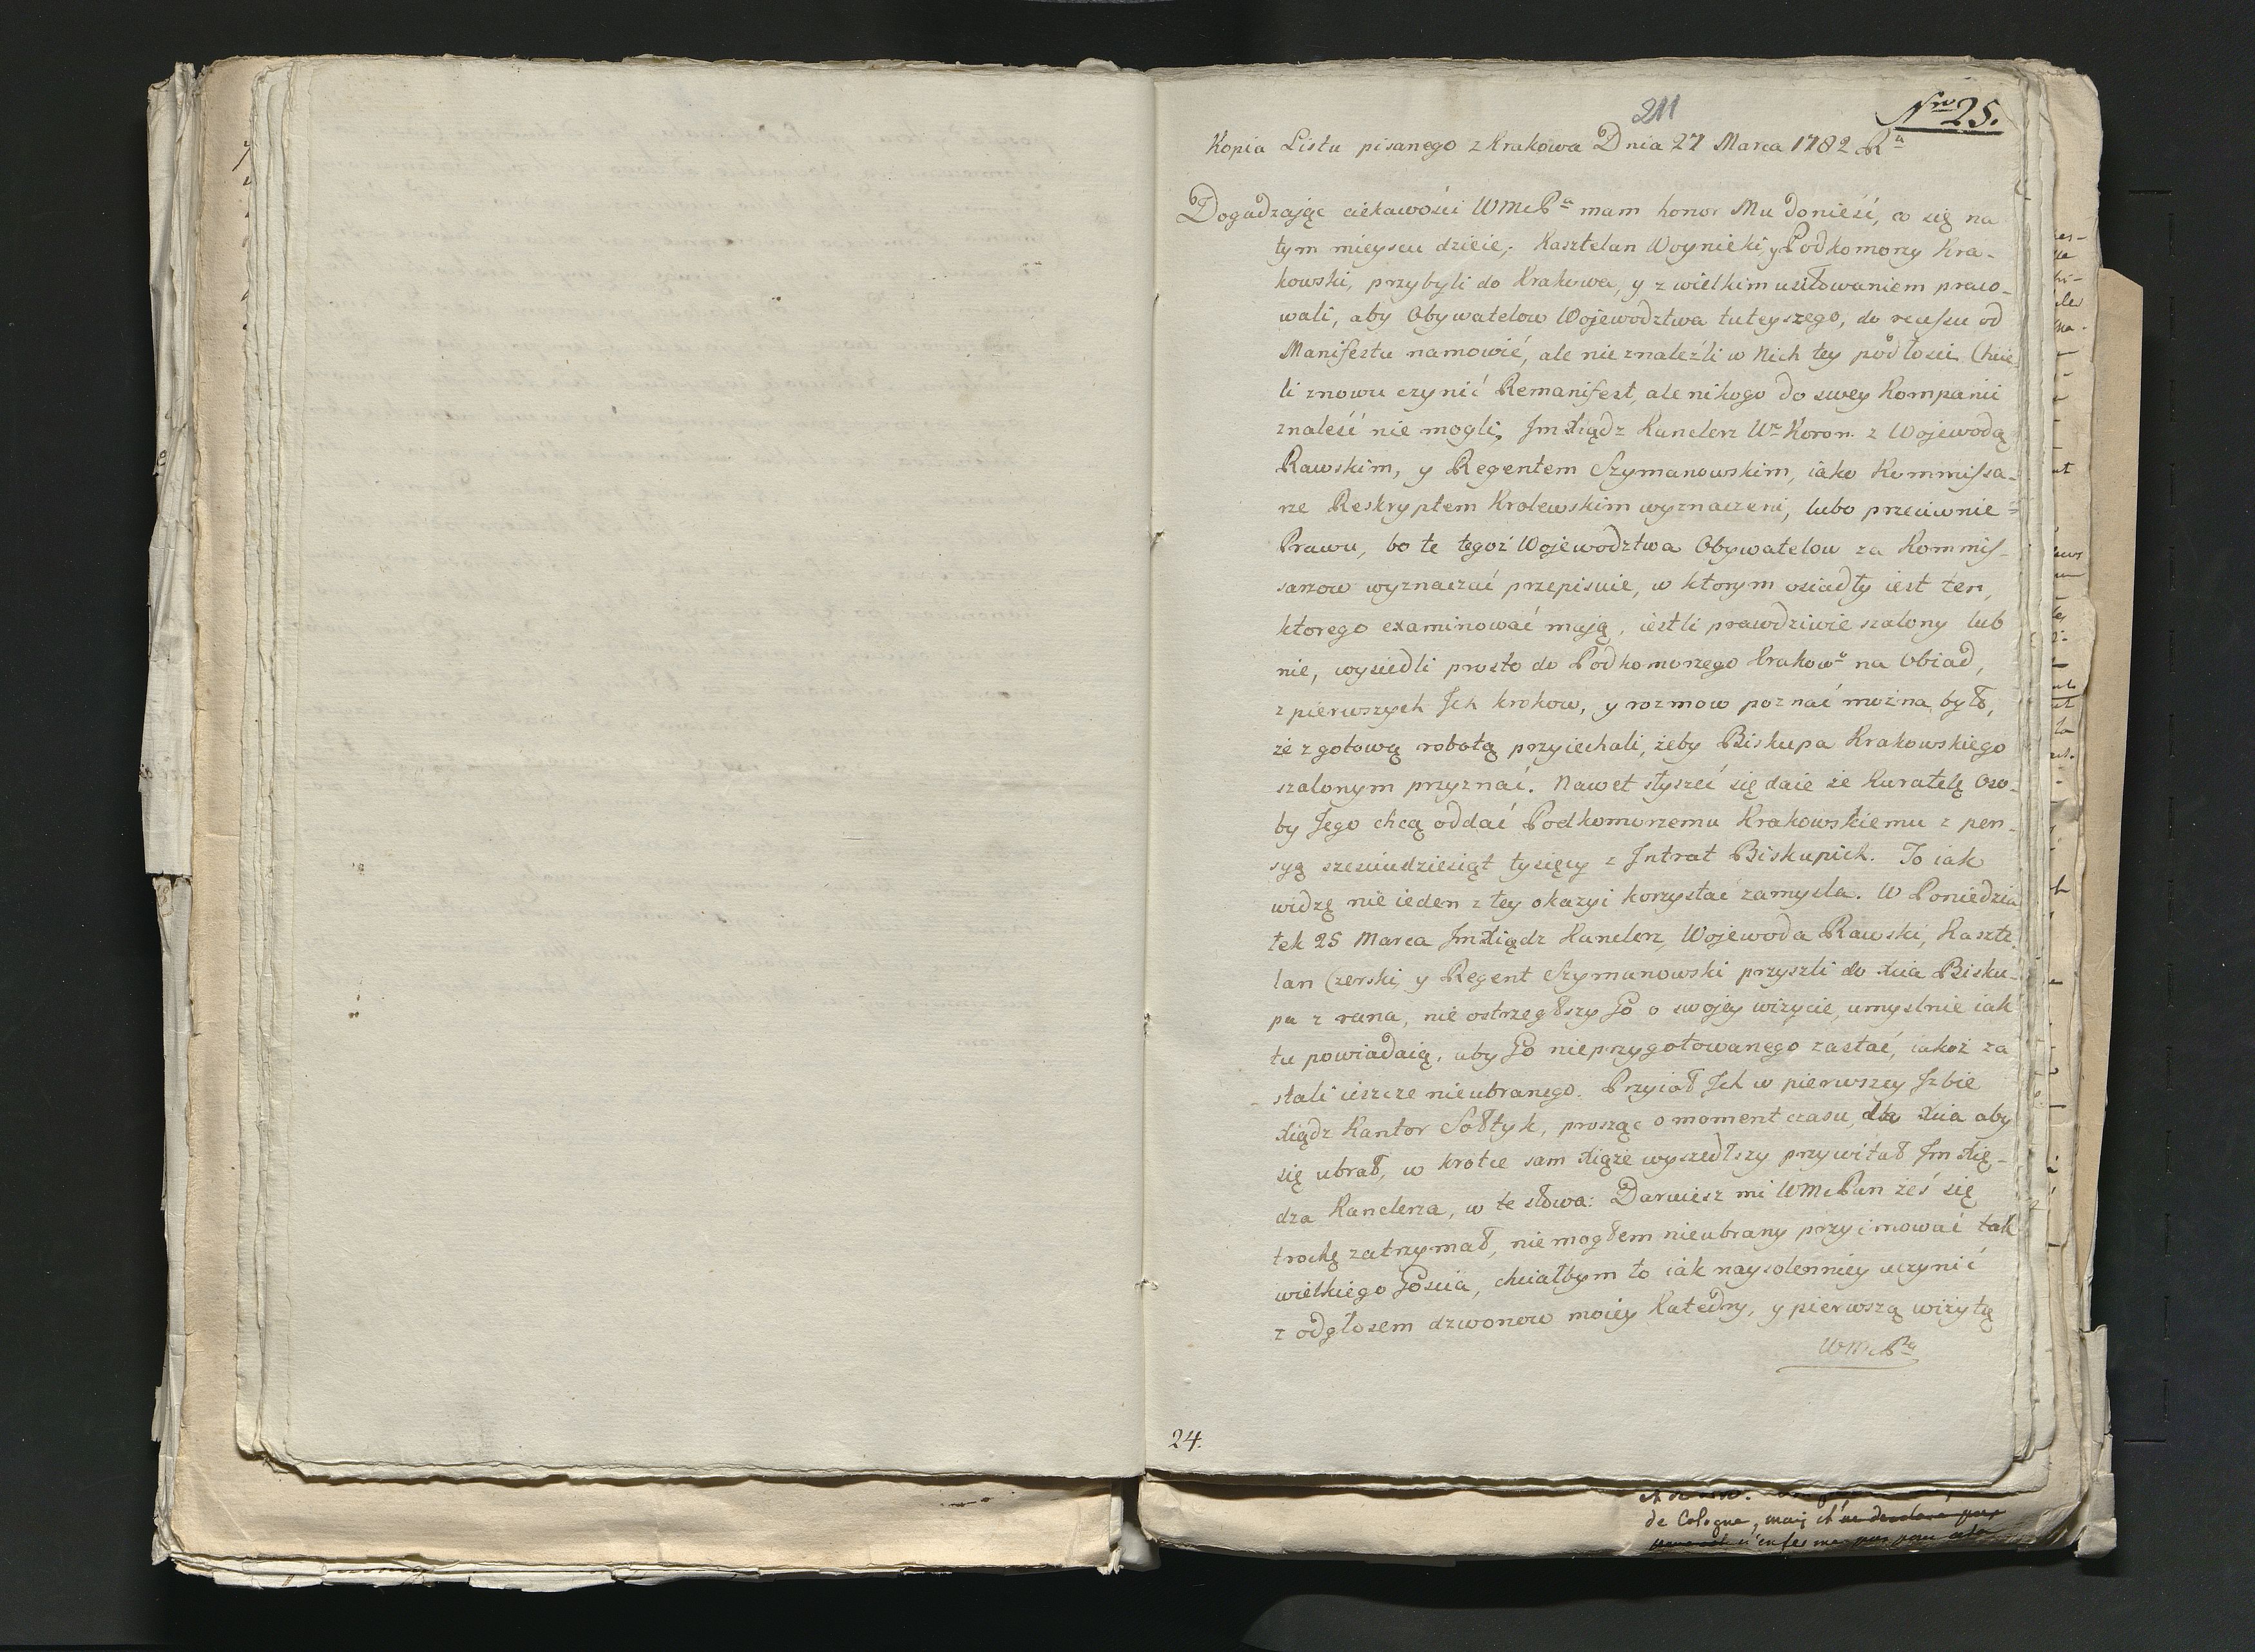 211
Nro 25.
Kopia Listu pisanego z Krakowa Dnia 27 Marca 1782 Ru
Dogadzaiąc ciekawości WMcPa mam honor Mu donieść, co się na
tym mieyscu dzieie; Kasztelan Woynicki y Podkomorzy Kra-
kowski, przybyli do Krakowa, y z wielkim usiłowaniem praco-
wali, aby Obywatelow Wojewodztwa tuteyszego, do recessu od
Manifestu namowić, ale nie znaleźli w Nich tey podłości. Chcie
li znowu czynić Remanifest, ale nikogo do swey Kompanii
znaleść nie mogli; Jm Xiądz Kanclerz Wr Koron. z Wojewodą
Rawskim, y Regentem Szymanowskim, iako Kommissa-
rze Reskryptem Krolewskim wyznaczeni, lubo przeciwnie
Prawu, bo te tegoż Wojewodztwa Obywatelow za Kommis-
sarzow wyznaczać przepisuie, w ktorym osiadły iest ten,
ktorego examinować maią, iestli prawdziwie szalony lub
nie, wysiedli prosto do Podkomorzego Krakowo na Obiad,
z pierwszych Jch krokow, y rozmow poznać można był,
że z gotową robotą przyiechali, żeby Biskupa Krakowskiego
szalonym przyznać. Nawet słyszeć się daie że Kuratelę Oso-
by Jego chcą oddać Podkomorzemu Krakowskiemu z pen-
syą sześćdziesiąt tysięcy z Jntrat Biskupich. To iak
widzę nie ieden z tey okazyi korzystać zamysla. W Poniedzia
łek 25 Marca Jm Xiądz Kanclerz, Wojewoda Rawski, Kaszte
lan Czerski, y Regent Szymanowski przyszli do Xcia Bisku-
pa z rana, nie ostrzegłszy Go o swojey wizycie, umyslnie iak
tu powiadaią, aby Go nieprzygotowanego zastać, iakoż za
stali ieszcze nieubranego. Przyiął Jch w pierwszey Jzbie
Xiądz Kantor Sołtyk, prosząc o moment czasu, dla Xcia aby
się ubrał, w krotce sam Xiąże wyszedłszy przywitał Jm Xię-
dza Kanclerza, w te słowa: Daruiesz mi WMcPan żeś się
trochę zatrzymał, nie mogłem nieubrany przyimować tak
wielkiego Gościa, chciałbym to iak naysolenniey uczynić
z odgłosem dzwonow moiey Katedry, y pierwszą wizytę
WMcPna
24.
de Cologne, mais